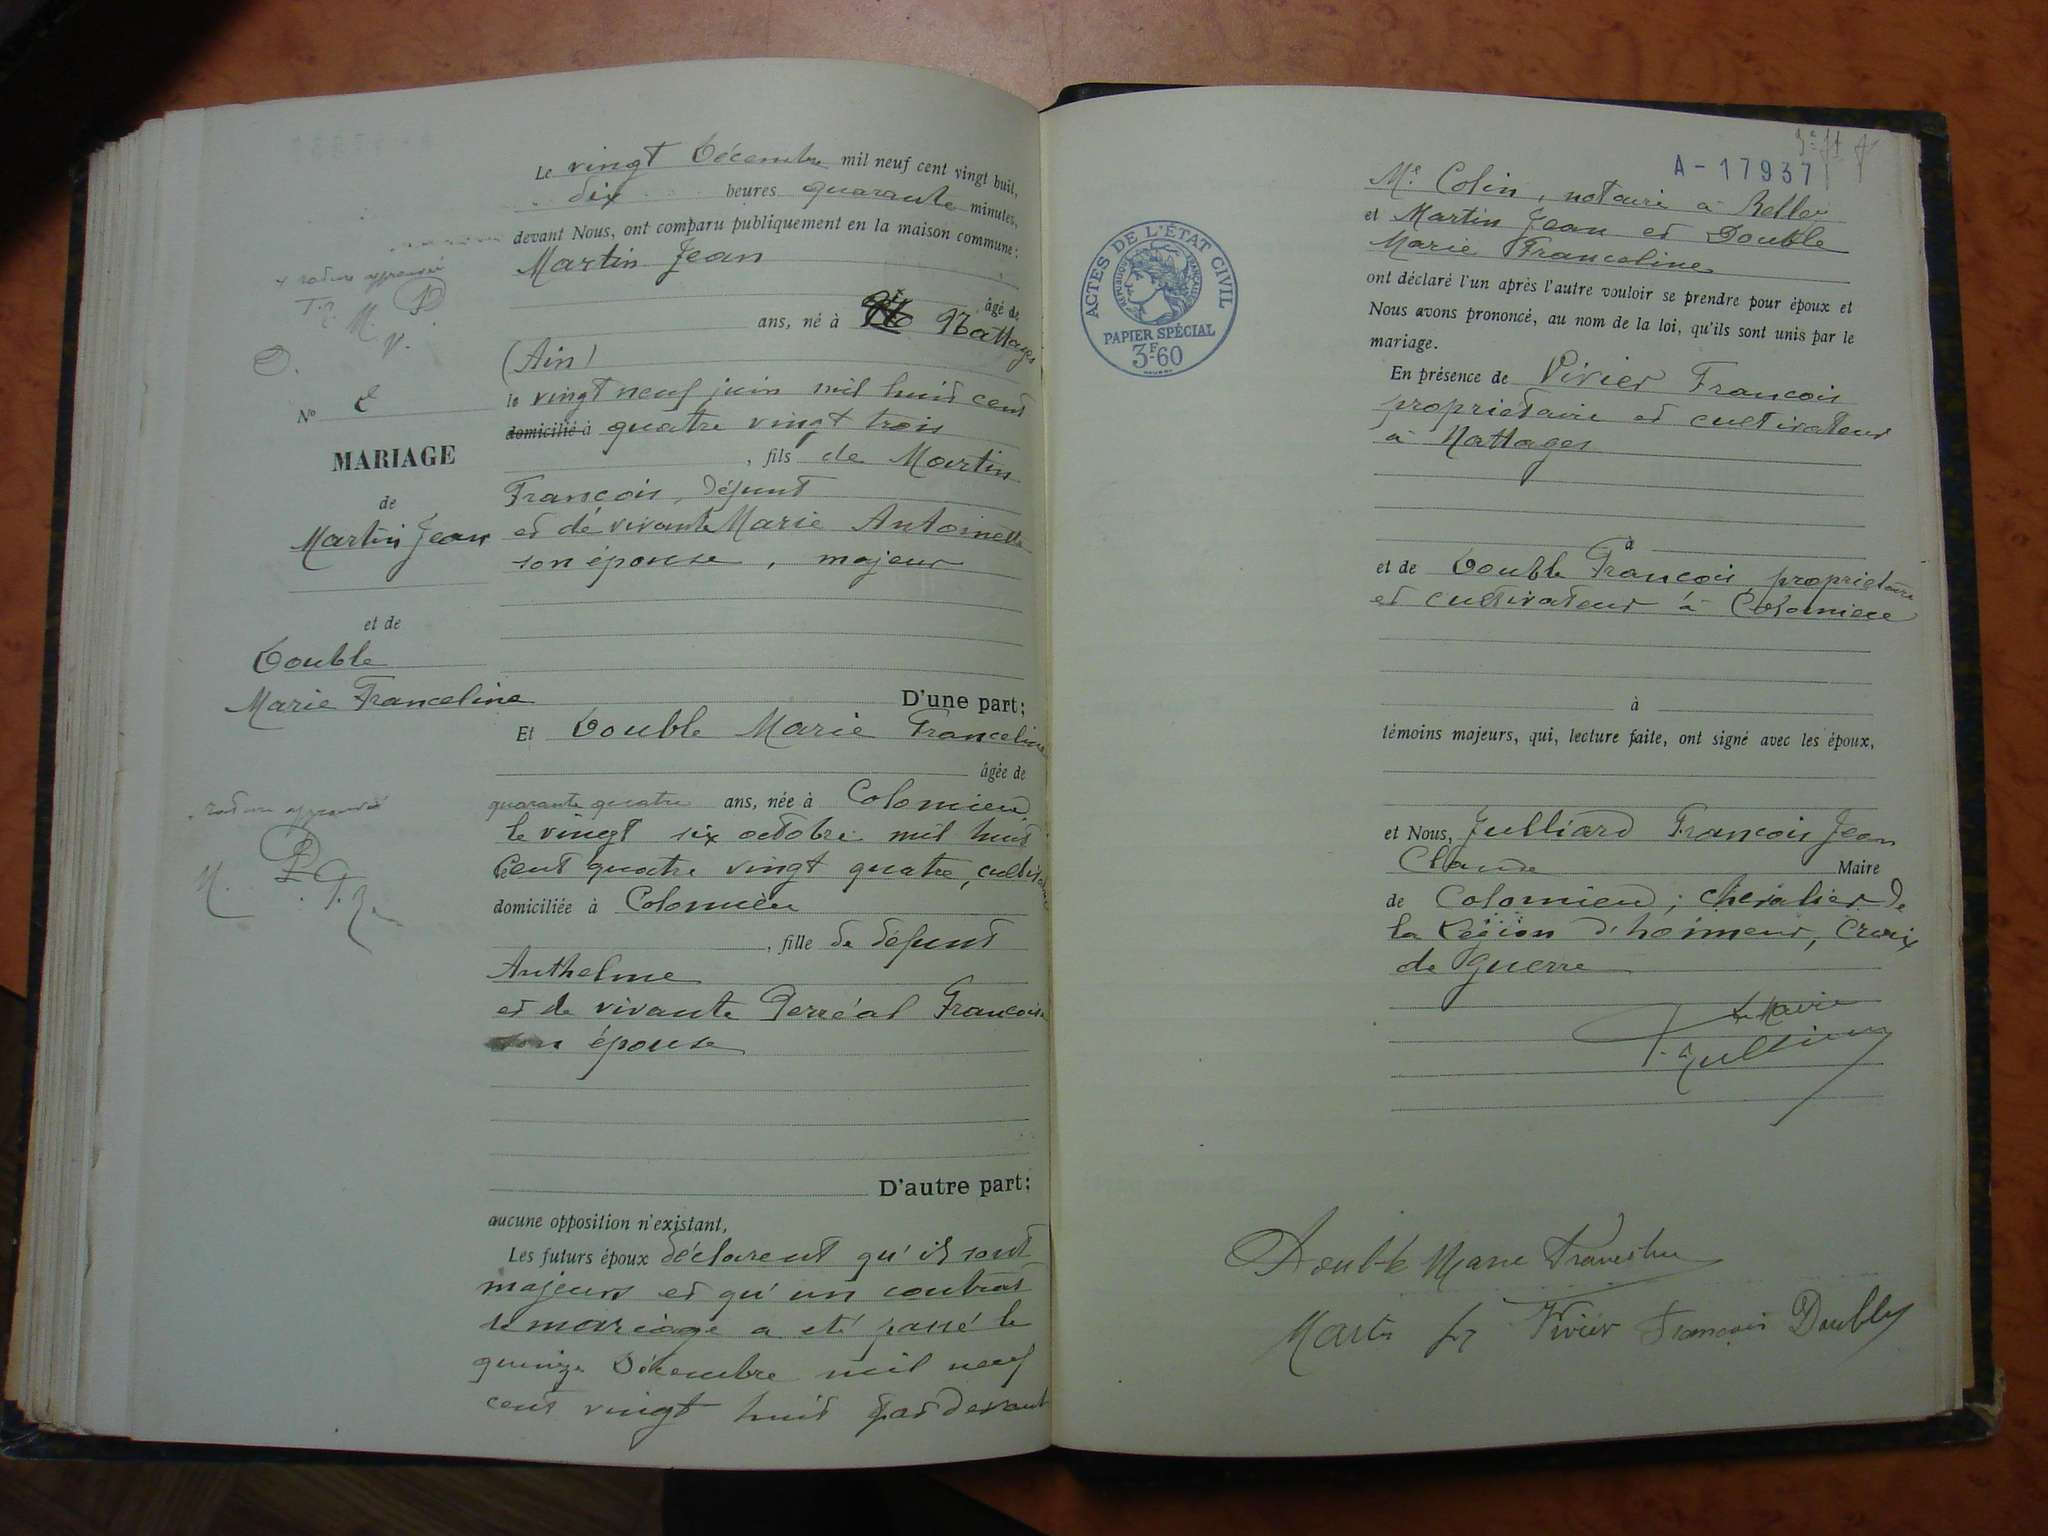 Le vingt Décembre mil neuf cent vingt huit,
dix heures quarante minutes,
devant Nous, ont comparu publiquement en la maison commune:
Martin Jean
âgé de
ans, né à Nattages
(Ain)
le vingt neuf juin mil huit cent
domicilié à quatre vingt trois
, fils de Martin
François, défunt
et de vivante Marie Antoinette
son épouse, majeur
rature approuvée
T.J. M. D
V.
D.
N° 2
MARIAGE
de
Martin Jean
et de
Double
Marie Franceline
D'une part;
Et Double Marie Franceline
âgée de
quarante quatre ans, née à Colomieu
le vingt six octobre mil huit
cent quatre vingt quatre,
domiciliée à Colomieu
, fille de défunt
Anthelme
et de vivante Perréal Françoise
son épouse
rature approuvée
D'autre part;
aucune opposition n'existant,
Les futurs époux déclarent qu'ils sont
majeurs et qu'un contrat
de mariage a été passé le
quinze Décembre mil neuf
cent vingt huit par devant
A-17937
Me Colin, notaire à Belley
et Martin Jean et Double
Marie Franceline
ont déclaré l'un après l'autre vouloir se prendre pour époux et
Nous avons prononcé, au nom de la loi, qu'ils sont unis par le
mariage.
ACTES DE L'ÉTAT CIVIL
RÉPUBLIQUE FRANÇAISE
PAPIER SPÉCIAL
3F60
En présence de Vivier François
propriétaire et cultivateur
à Nattages
à
et de Double François propriétaire
et cultivateur à Colomieu
à
témoins majeurs, qui, lecture faite, ont signé avec les époux,
et Nous, Julliard François Jean
Claude Maire
de Colomieu, chevalier de
la Légion d'honneur, Croix
de guerre
Le Maire
Double Marie
Martin Vivier François Double